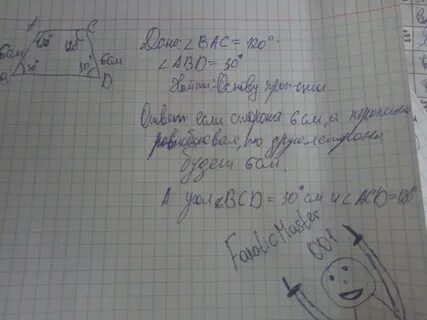 A C
120° 120°
6см 6см
30° 30°
B D
Дано: ∠BAC = 120°
∠ABD = 30°
Найти: Основу
Ответ если сторона 6 см, а
то другая сторона
будет 6 см.
А угол ∠BCD = 30° см и ∠ACD = 120°
FanaticMaster
001